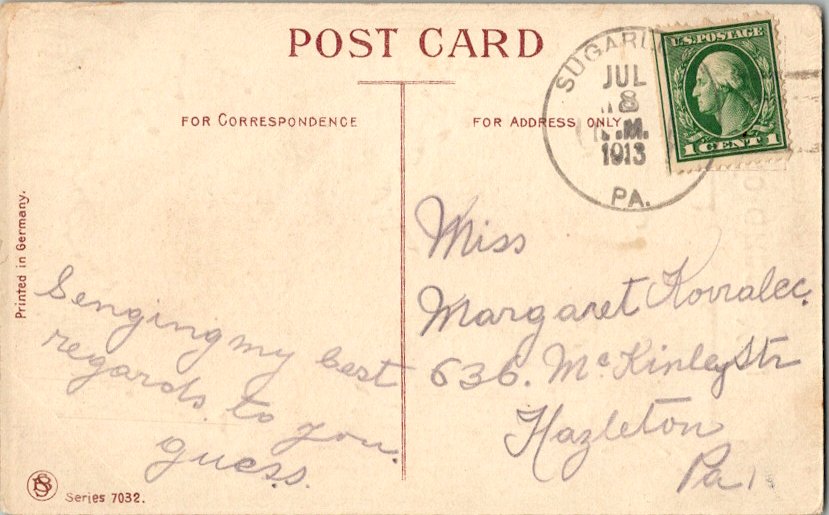 POST CARD
FOR CORRESPONDENCE
FOR ADDRESS ONLY
U.S. POSTAGE
1 CENT 1
JUL
8
M.
1913
PA.
Printed in Germany.
Senging my best
regards to you.
guess.
Miss
Margaret
636. McKinley Str
Hazleton
Pa.
Series 7032.